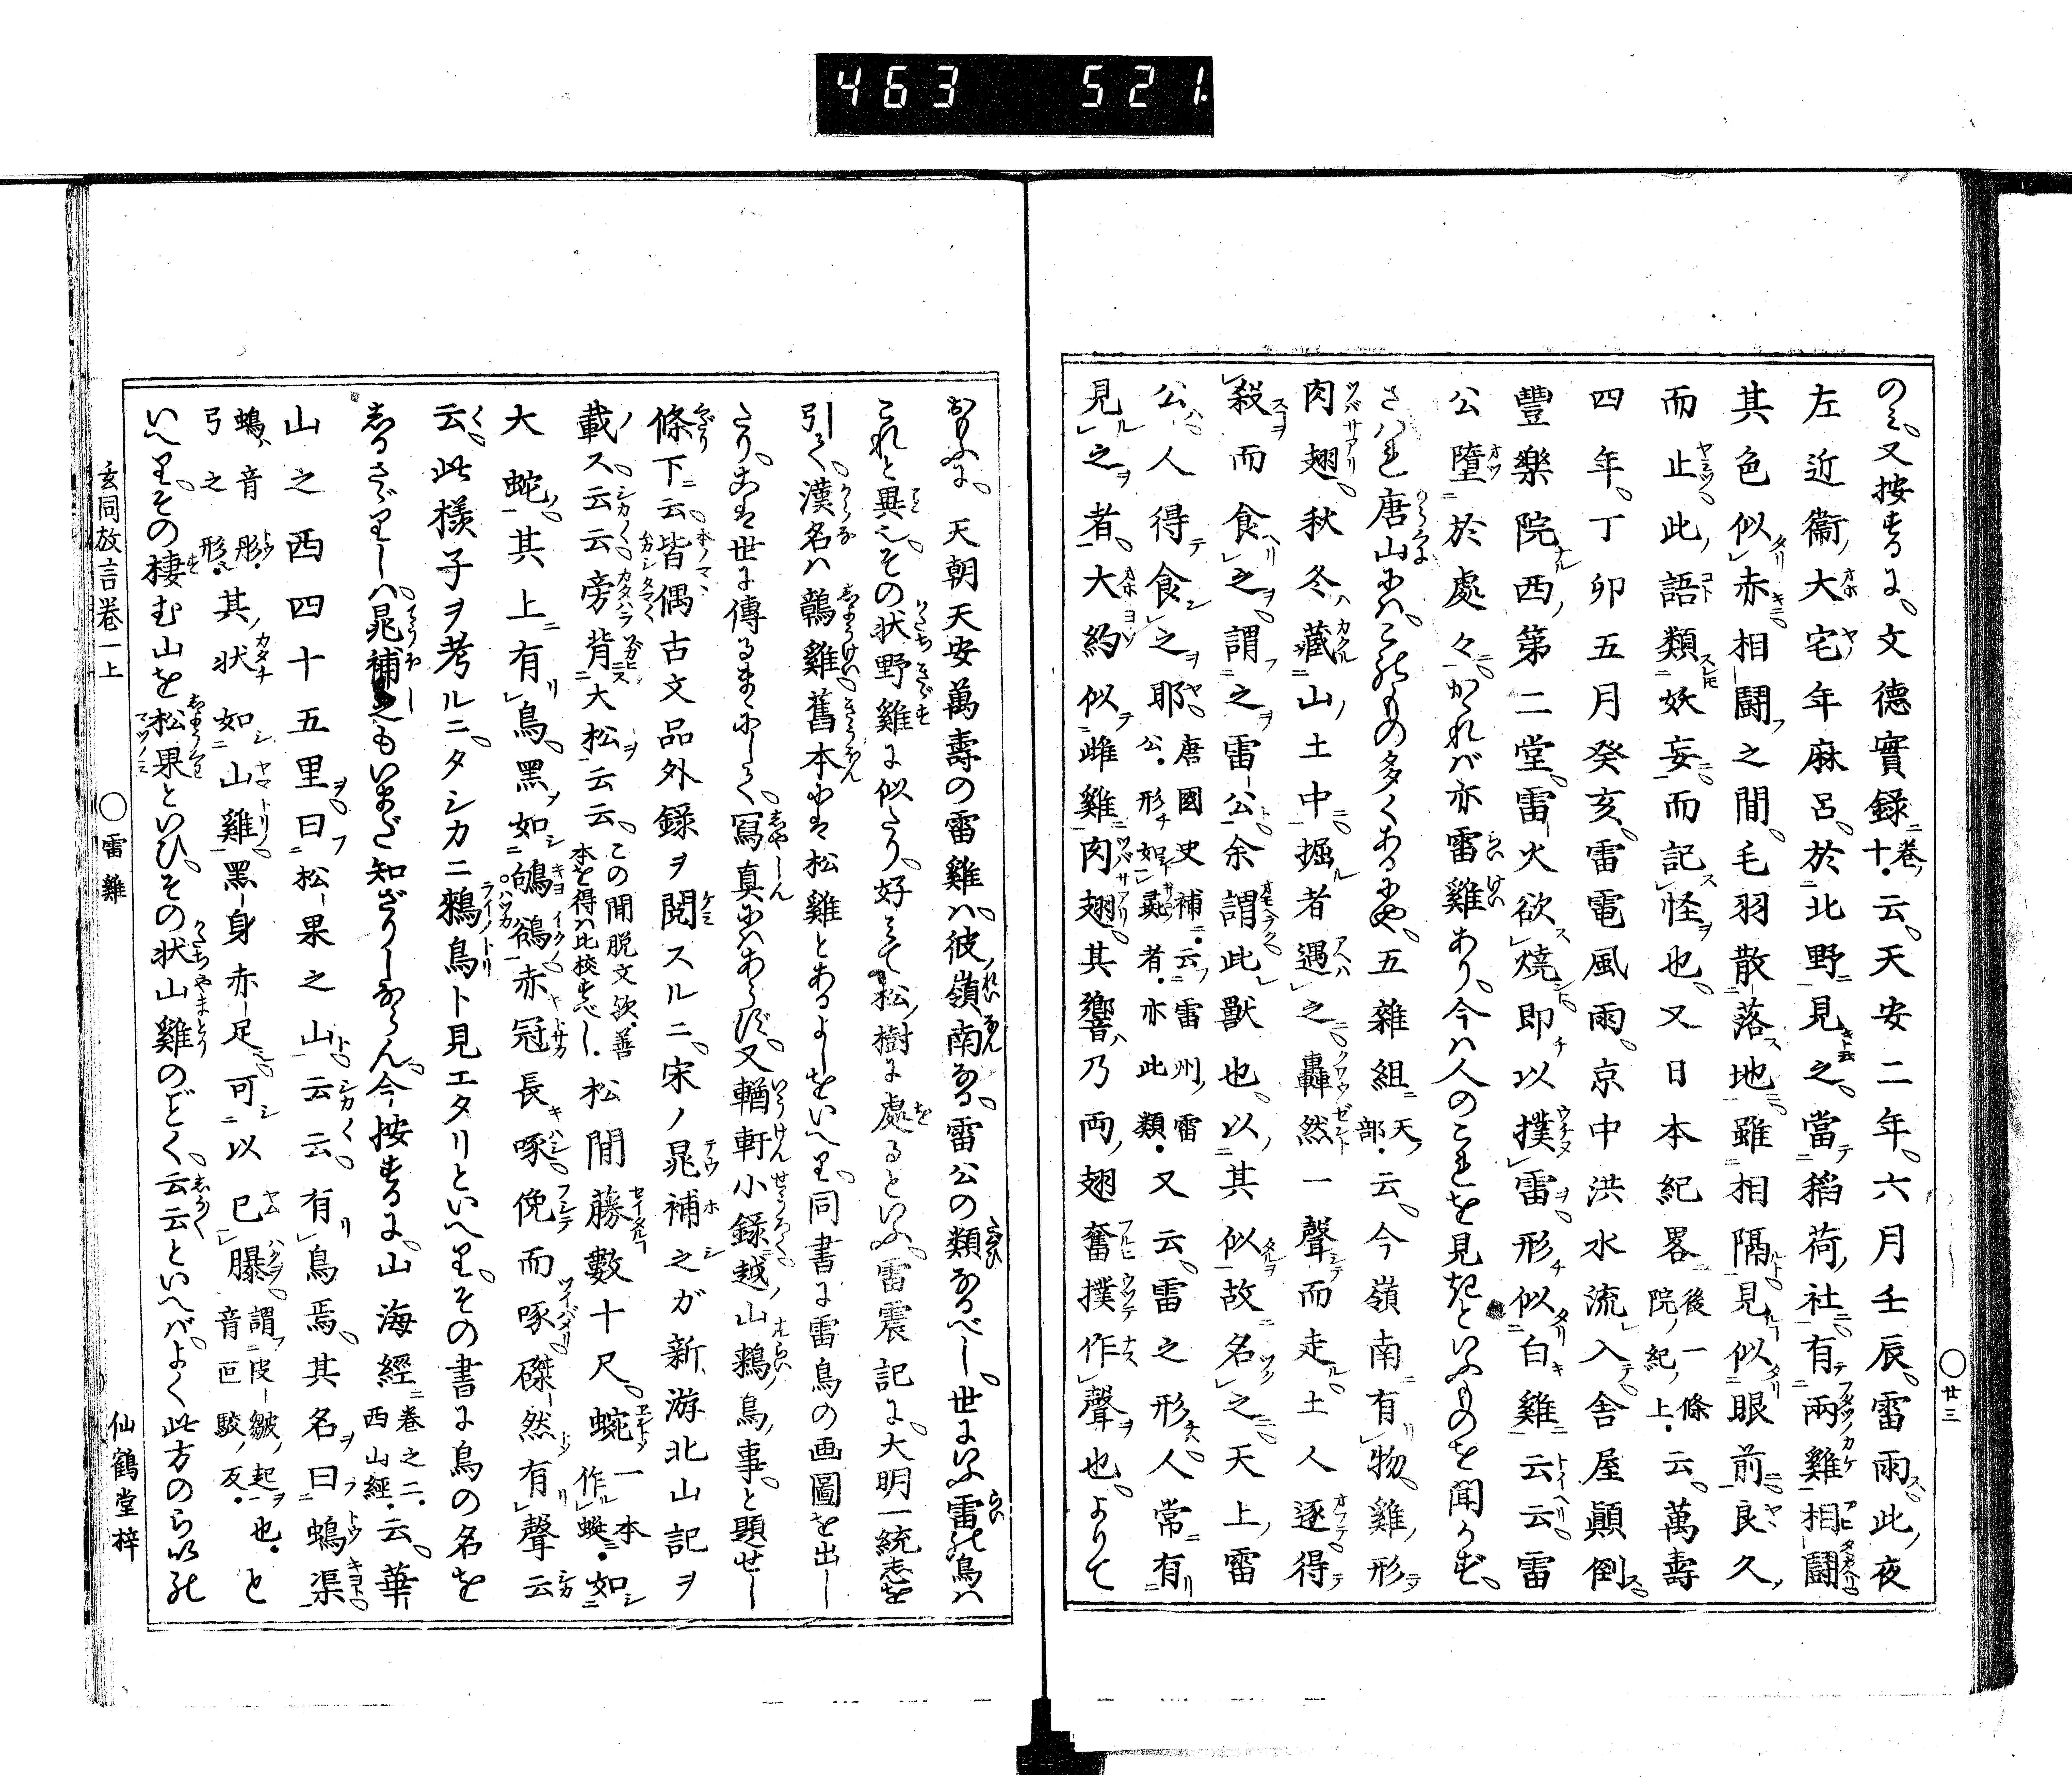 463 521
のミ。又按ずるに。文德實錄卷十云。天安二年。六月壬辰。雷雨。此夜
左近衞大宅年麻呂。於北野見之。當稻荷社有兩雞相鬪。
其色似赤。相鬪之間。毛羽散落地。雖相隔見似眼前。良久
而止。此語類妖妄。而記怪也。又日本紀畧後一條院紀上云。萬壽
四年。丁卯五月癸亥。雷電風雨。京中洪水流入。舍屋顚倒。
豐樂院西第二堂。雷火欲燒。即以撲雷。形似白雞云云。雷
公墮於處々。かゝれバ亦雷雞あり。今ハ人のこれを見きといふものを聞かず。
さハれ唐山にハ。このもの多くあるにや。五雜組天部云。今嶺南有物。雞形
肉翅。秋冬藏山土中。掘者遇之。轟然一聲而走。土人逐得
殺而食之。謂之雷公。余謂此獸也。以其似故名之。天上雷
公。人得食之耶。唐國史補云。雷州雷公。形如彘者。亦此類。又云。雷之形。人常有
見之者。大約似雌雞肉翅。其響乃兩翅奮撲作聲也。よりて
おもふに。天朝天安萬壽の雷雞ハ。彼嶺南なる。雷公の類なるべし。世にいふ雷の鳥ハ
これと異也。その状野雞に似たり。好みて松樹に處るといふ。雷震記に。大明一統志を
引く。漢名ハ鷮雞。舊本にハ松雞とあるよしをいへり。同書に雷鳥の画圖を出し
たり。こハ世に傳るまゝにしく。寫真にハあらず。又輶軒小錄。越山鶆鳥事。と題せし
條下云。皆偶古文品外錄ヲ閲スルニ。宋ノ晁補之ガ新游北山記ヲ
載ス。云云。旁背大松云云。この間脱文欤。善本を得ハ比校すべし。松間藤數十尺。蜿一本作蜒。如
大蛇。其上有鳥。黑如鴝鵒。赤冠長啄。俛而啄。磔然有聲。云
云。此樣子ヲ考ルニ。タシカニ鶆鳥ト見エタリといへり。その書に鳥の名を
志るさゞりしハ。晁補之もいまだ知ざりしならん。今按ずるに。山海經卷之二。西山經云。華
山之西四十五里。曰松果之山。云云。有鳥焉。其名曰䳋渠。
䳋音彤。弓之形。其状如山雞。黑身赤足。可以已𦢊。謂皮皺起也。音叵駮反。と
いへり。その棲む山を松果といひ。その状山雞のごとく。云云といへバ。よく此方のらいの
玄同放言卷一上 ○雷雞 仙鶴堂梓
○廿三